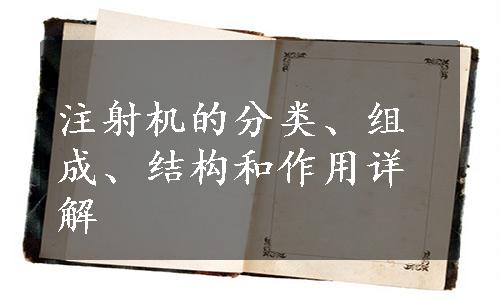 注射机的分类、组
成、结构和作用详
解